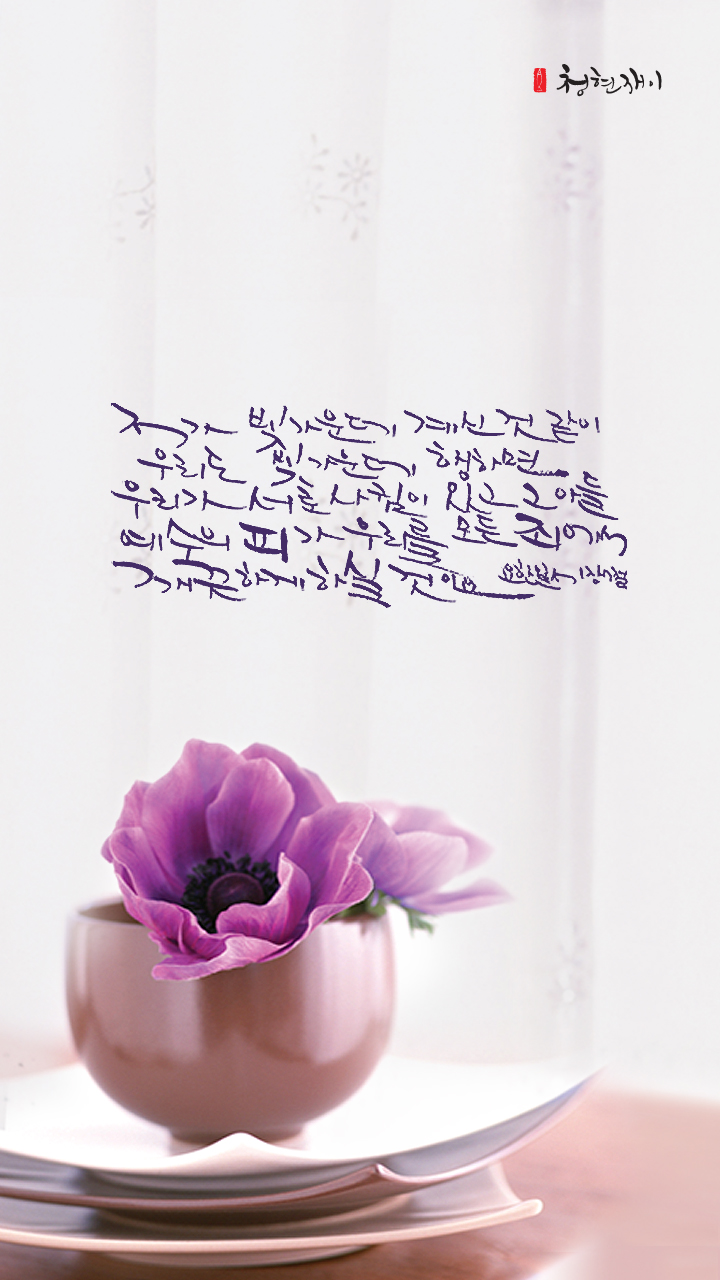 청현재이
저가 빛 가운데 계신 것 같이
우리도 빛 가운데 행하면
우리가 서로 사귐이 있고 그 아들
예수의 피가 우리를 모든 죄에서
깨끗하게 하실 것이요 요한일서 1장 7절